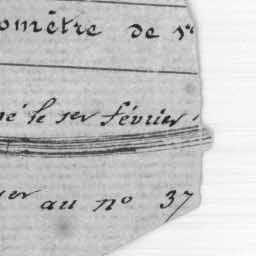 omètre de
é le 1er février
er au no 37